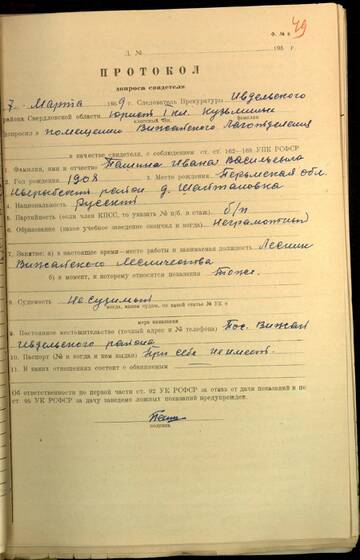 49
Ф. № 6
Д. № 195 г.
ПРОТОКОЛ
допроса свидетеля
7. Марта 1959 г. Следователь Прокуратуры Ивдельского
района Свердловской области Юрист I кл. Кузьминых
классный чин, фамилия
допросил в помещении Вижайского Лаготделения
в качестве свидетеля, с соблюдением ст. ст. 162—168 УПК РСФСР
1. Фамилия, имя и отчество Пашина Ивана Васильевича
2. Год рождения 1908 3. Место рождения Пермская обл.
район д.
4. Национальность Русский
5. Партийность (если член КПСС, то указать № п/б. и стаж) б/п
6. Образование (какое учебное заведение окончил и когда) Неграмотный
7. Занятие: а) в настоящее время—место работы и занимаемая должность Лесник
Вижайского Лесничества
б) в момент, к которому относятся показания Тоже.
8. Судимость Не судимый
когда, каким судом, по какой статье № УК и
мера наказания
9. Постоянное местожительство (точный адрес и № телефона) Пос. Вижай
Ивдельского района
10. Паспорт (№ и когда и кем выдан) При себе не имеет.
11. В каких отношениях состоит с обвиняемым
Об ответственности по первой части ст. 92 УК РСФСР за отказ от дачи показаний и по
ст. 95 УК РСФСР за дачу заведомо ложных показаний предупрежден.
подпись